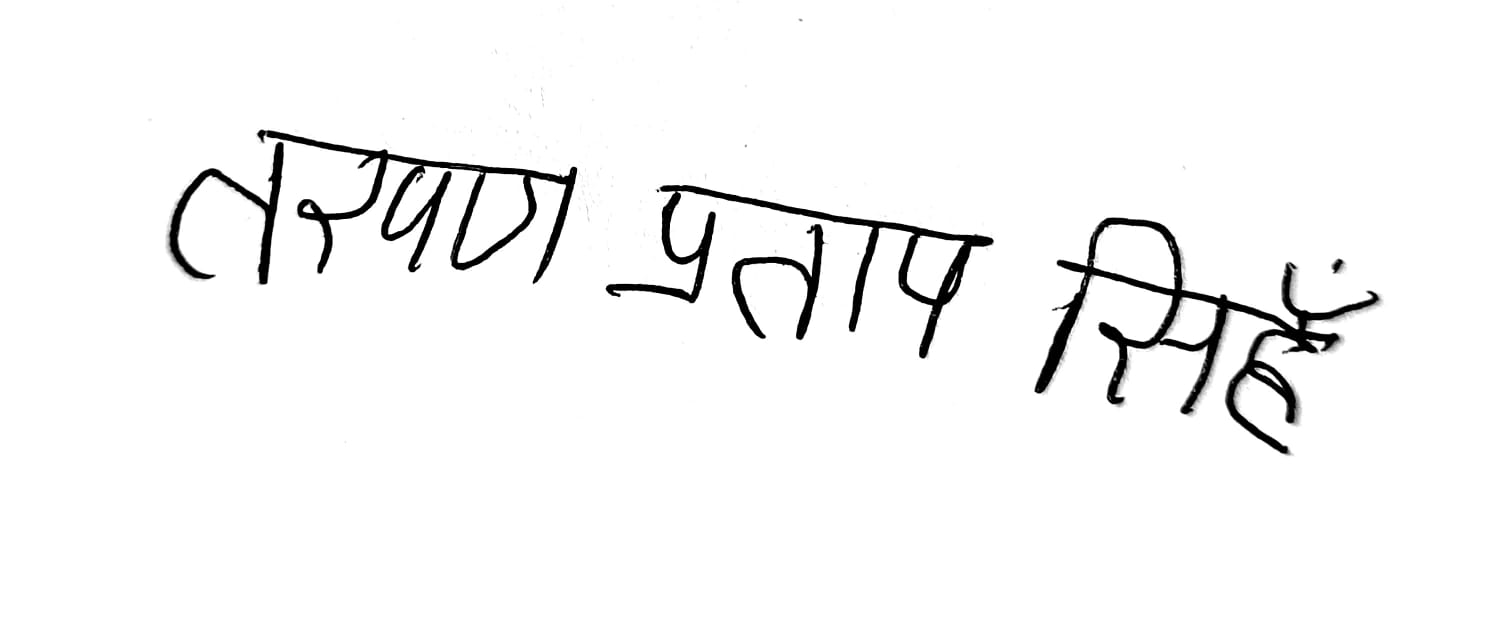 तरपण प्रताप सिहँ